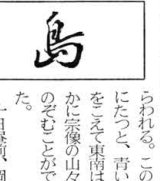 島
らわれる。この
にたつと、青い
をこえて東南は
かに宗像の山々
のぞむことがで
た。